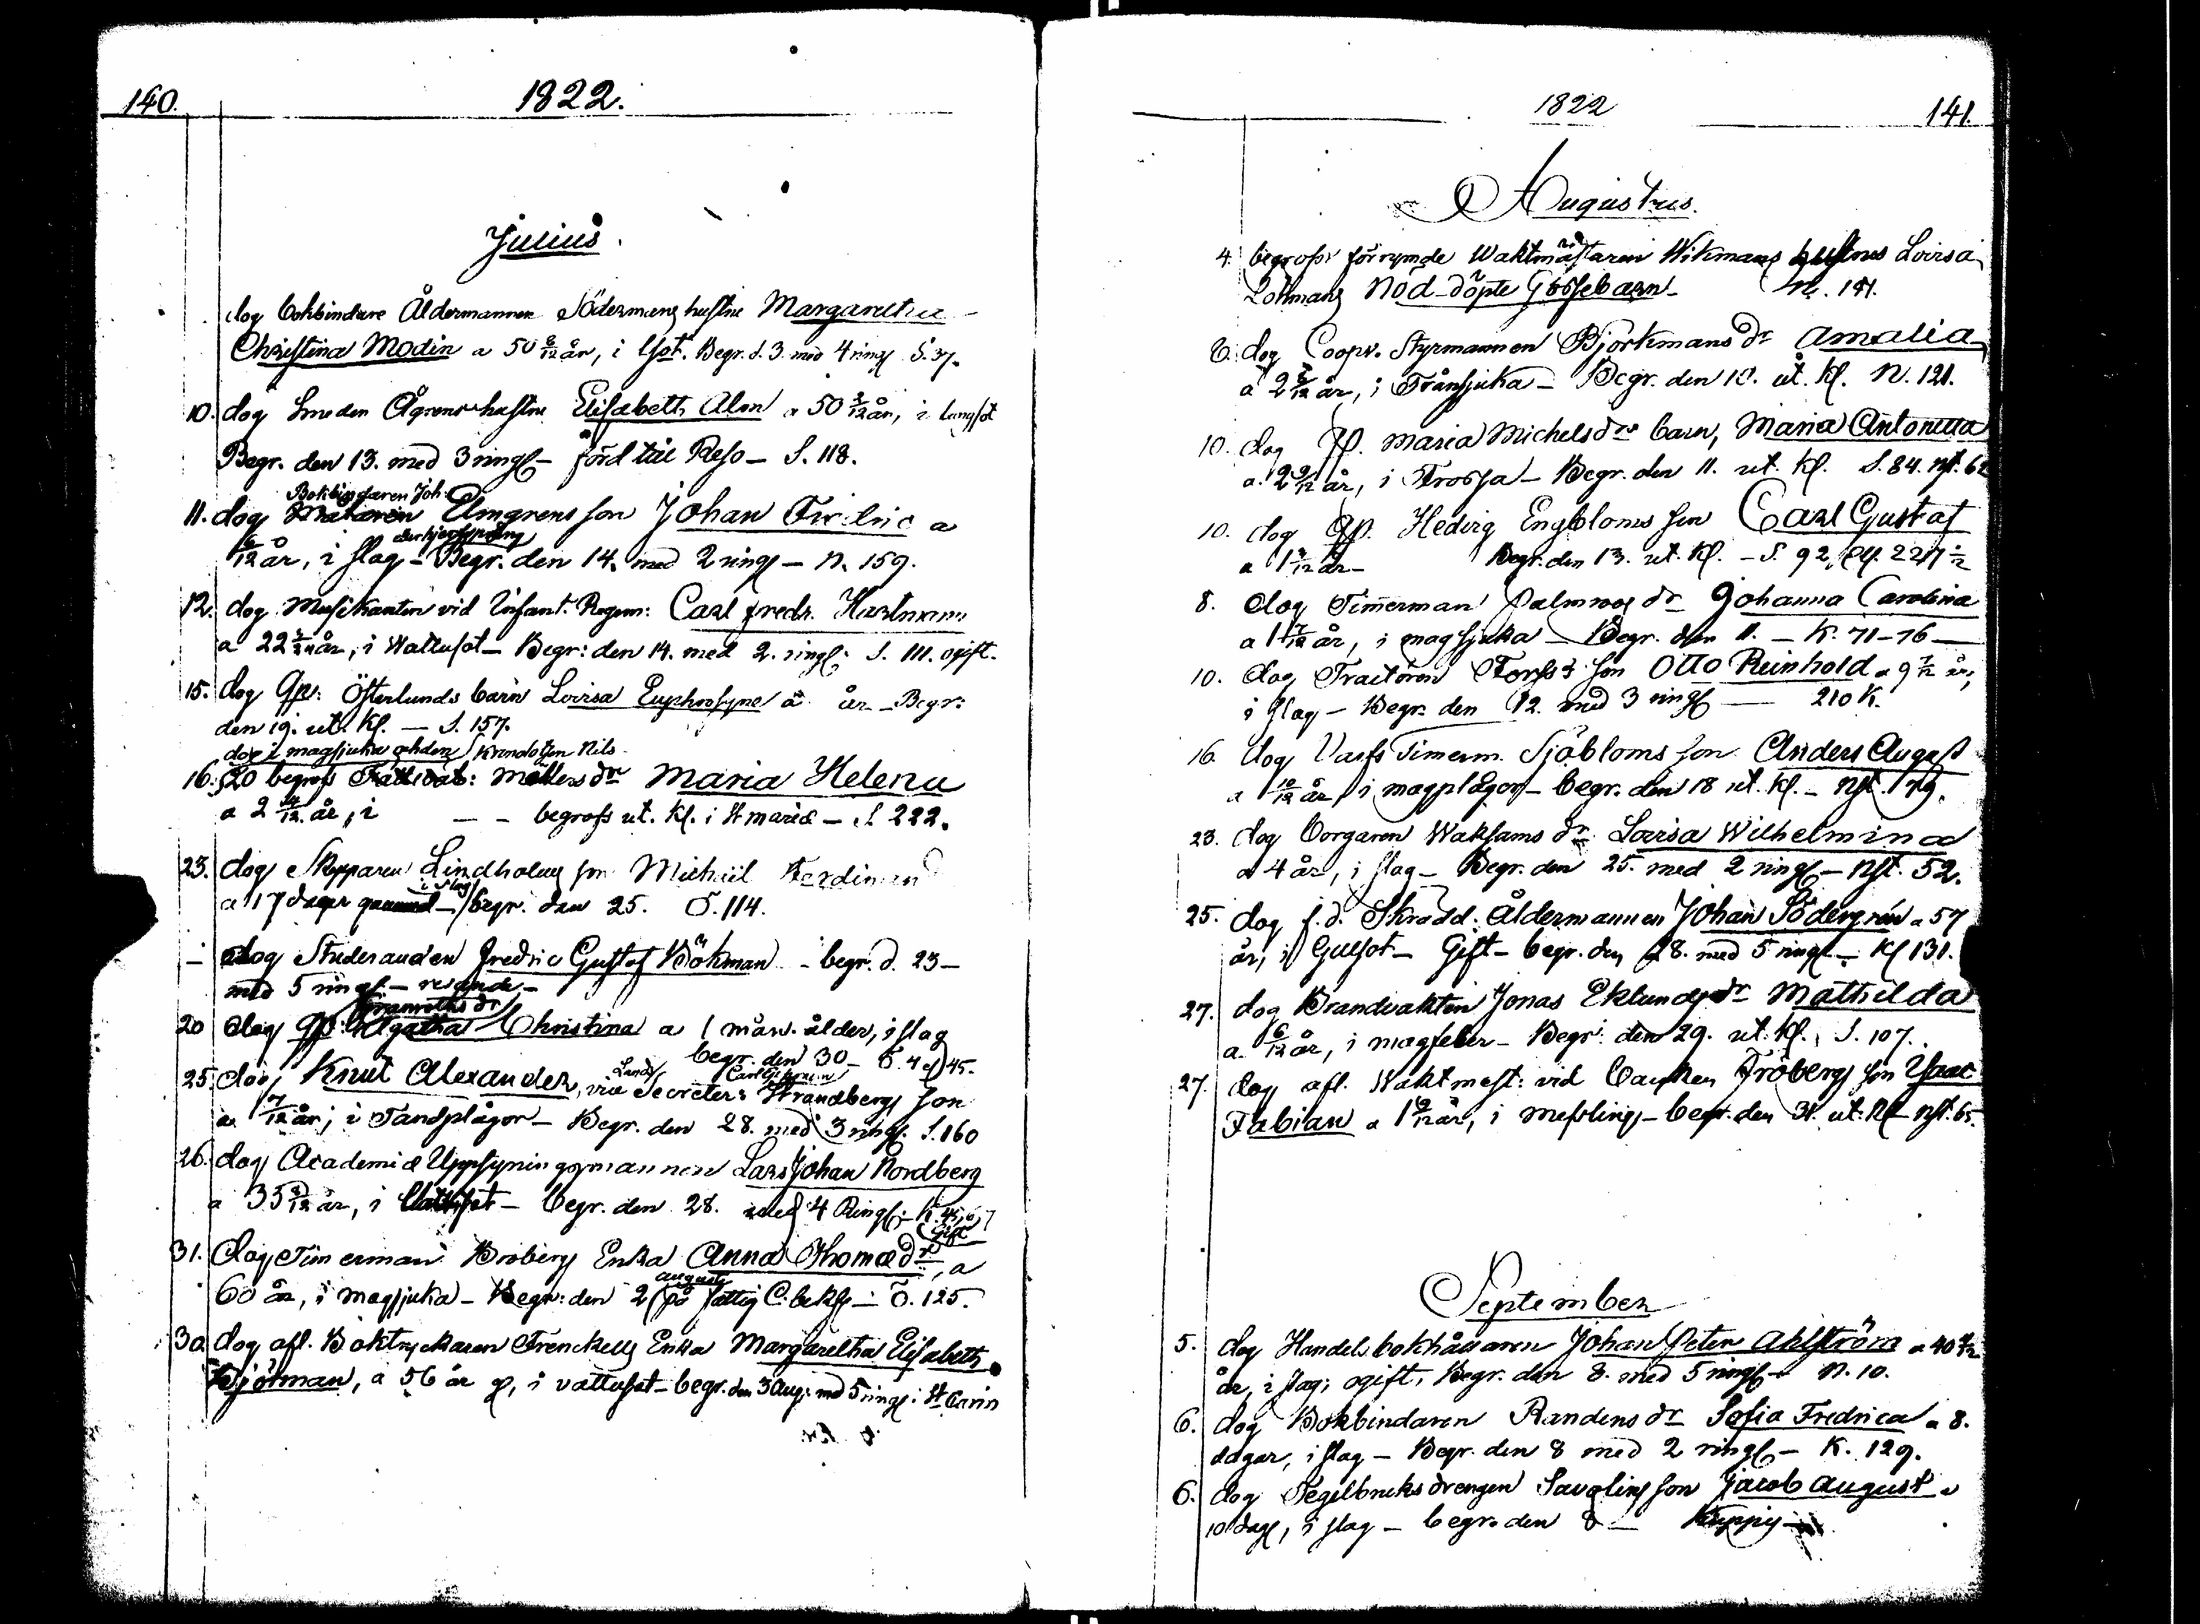 140.
1822.
Julius.
dog bokbindare Åldermannen Södermans hustru Margaretha
Christina Modin a 50 8/12 år, i Begr. d. 3. med 4 ring S. 37.
10. dog Smeden Ågrens hustru Elisabeth Alen a 50 3/12 år, i lungsot
Begr. den 13. med 3 ringr – förd til Reso – S. 118.
Bokbindaren Joh.
11. dog Elmgrens son Johan Fredric a
6/12 år, i slag – Begr. den 14. med 2 ringr – N. 159.
12. dog Musikanten vid Infant. Regem: Carl Fredr. Hartman
a 22 år, i Wattusot – Begr: den 14. med 2. ringr. S. 111. ogift.
15. dog Qp: Österlunds barn Lovisa Euphrosyne a år – Begr:
den 19. ut. Kl. – S. 157.
dog i magsjuka Nils
16. 20 begrofs dr Maria Helena
a 2 4/12 år, i – – begrofs ut. Kl. i St Mariæ – S. 222.
23. dog Skepparen Lindholms son Michael Ferdinand
i slag
a 17 dagar – begr. den 25. Ö. 114.
– dog Studeranden Fredric Gustaf Böhman – begr. d. 23 –
med 5 ringr. – –
dr
20 dog Qp: Agatha Christina a 1 mån. ålder, i slag
begr. den 30 – 45.
25. dog Knut Alexander, vice Secreter: Strandbergs son
a 7/12 år, i Tandplågor – Begr. den 28. med 3 ringr. S. 160
26. dog Academiæ Uppsyningsmannen Lars Johan Nordberg
a 35 år, i – begr. den 28. med 4 Ringr. – K. 45, 6, 7
Gift
31. dog Timerman Brobergs Enka Anna Thomædr, a
augusti
60 år, i magsjuka – Begr: den 2 på fattig C. bekostn. – Ö. 125.
30 dog afl. Boktryckaren Frenckells Enka Margaretha Elisabeth
Björkman, a 56 år, i vattusot – begr. den 3 Aug: med 5 ringr. i St Carin
1822
141.
Augustus.
4. begrofs förrymde Waktmästaren Wikmans hustrus Lovisa
Lohmans Nöd-döpte Gossebarn – N. 141.
6. dog Coopv. Styrmannen Björkmans dr Amalia
a 2 år, i Trånsjuka – Begr. den 10. ut. Kl. N. 121.
10. dog Qp. Maria Michelsdrs barn, Maria Antonetta
a. 2 2/12 år, i Trossa – Begr. den 11. ut. Kl. S. 84. Nst. 62
10. dog Qp. Hedvig Engbloms son Carl Gustaf
a 1 år – Begr. den 13. ut. Kl. – S. 92.
8. dog Timerman Palmroos dr Johanna Carolina
a 1 7/12 år, i magsjuka – Begr. den 11. – K. 71–76 –
10. dog Traitören Forss's son Otto Reinhold a 9 7/12 år,
i slag – Begr. den 12. med 3 ringr – 210 K.
16. dog Varfs Timerm. Sjöbloms son Anders August
a 10/12 år, i magplågor – begr. den 18 ut. Kl. – Nst. 179.
23. dog borgaren Waksams dr Lovisa Wilhelmina
a 4 år, i slag – Begr. den 25. med 2 ringr – Nst. 52.
25. dog f.d. Skradd: Åldermannen Johan Södergrén a 57
år, i Gulsot – Gift – begr. den 28. med 5 ringr – Kl 131.
27. dog Brandvakten Jonas Eklunds dr Mathilda
a. 6/12 år, i magfeber – Begr. den 29. ut. Kl. S. 107.
27. dog afl. Waktmest: vid Banken Fröbergs son Isaac
Fabian a 1 år, i messling – begr. den 31. ut. Kl – Nst. 65.
September
5. dog Handels bokhållaren Johan Peter Ahlström a 40
år, i slag; ogift, Begr. den 8. med 5 ringr – N. 10.
6. dog Bokbindaren Randens dr Sofia Fredrica a 8.
dagar, i slag – Begr. den 8 med 2 ringr – K. 129.
6. dog Tegelbruks drengen Savelins son Jacob August a
10 dagr, i slag – begr. den 8 –